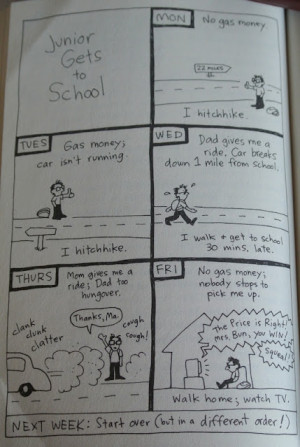 Junior
Gets
to
School
MON
No gas money.
22 miles
I hitchhike.
TUES
Gas money;
car isn't running.
I hitchhike.
WED
Dad gives me a
ride. Car breaks
down 1 mile from school.
I walk + get to school
30 mins. late.
THURS
Mom gives me a
ride; Dad too
hungover.
Thanks, Ma.
clank
clunk
clatter
cough
cough!
FRI
No gas money;
nobody stops to
pick me up.
The Price is Right!
Mrs. Bun, you WIN!
Squeal!!
Walk home; watch TV.
NEXT WEEK: Start over (but in a different order!)